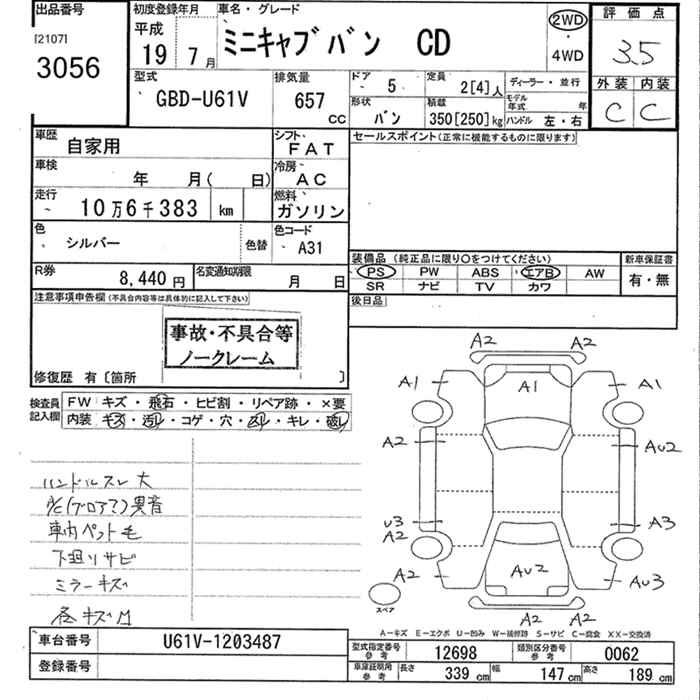 出品番号
[2107]
3056
初度登録年月
平成
19年 7月
車名・グレード
ミニキャブバン CD
2WD
・
4WD
評価点
3.5
外装 内装
C C
型式
GBD-U61V
排気量
657
cc
ドア 5
定員 2[4]人
ディーラー・並行
形状 バン
積載 350[250]kg
モデル年式 年
ハンドル 左・右
車歴 自家用
シフト FAT
セールスポイント(正常に機能するものに限ります)
車検 年 月( 日)
冷房 AC
走行 10万6千383 km
燃料 ガソリン
色 シルバー
色替
色コード A31
装備品 (純正品に限り〇をつけてください)
新車保証書
PS PW ABS エアB AW
有・無
SR ナビ TV カワ
R券 8,440円
名変通知期限 月 日
後日品
注意事項申告欄(不具合内容等は具体的に記入して下さい)
事故・不具合等
ノークレーム
修復歴 有〔箇所 〕
検査員記入欄
FW キズ・飛石・ヒビ割・リペア跡・×要
内装 キズ・汚れ・コゲ・穴・凹み・キレ・破れ
ハンドルスレ大
A/C(ブロア?)異音
車内ペット毛
下廻りサビ
ミラーキズ
各キズ凹
A2 A2
A1 A1 A1
A2 AU2
U3 A3
A2
A2 AU2 AU3
スペア
A2 A2
A-キズ E-エクボ U-凹み W-補修跡 S-サビ C-腐食 XX-交換済
車台番号 U61V-1203487
登録番号
型式指定番号 参考 12698
類別区分番号 参考 0062
車庫証明用 参考 長さ 339cm 幅 147cm 高さ 189cm